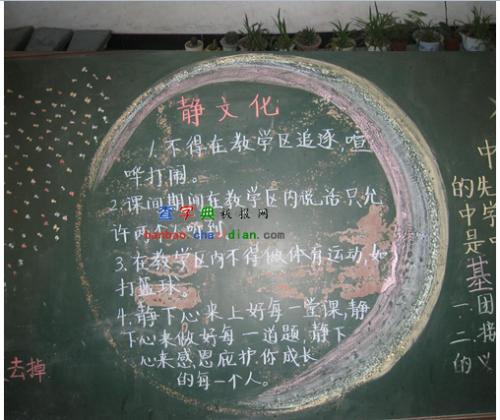 静文化
1.不得在教学区追逐,喧
哗打闹。
2.课间期间在教学区内说话只允
许两人听到
3.在教学区内不得做体育运动,如
打篮球。
4.静下心来上好每一堂课,静
下心来做好每一道题,静下
心来感恩庇护你成长
的每一个人。
查字典板报网
banbao.chazidian.com
去掉
中失学
的中是基
团接
一.二.的义